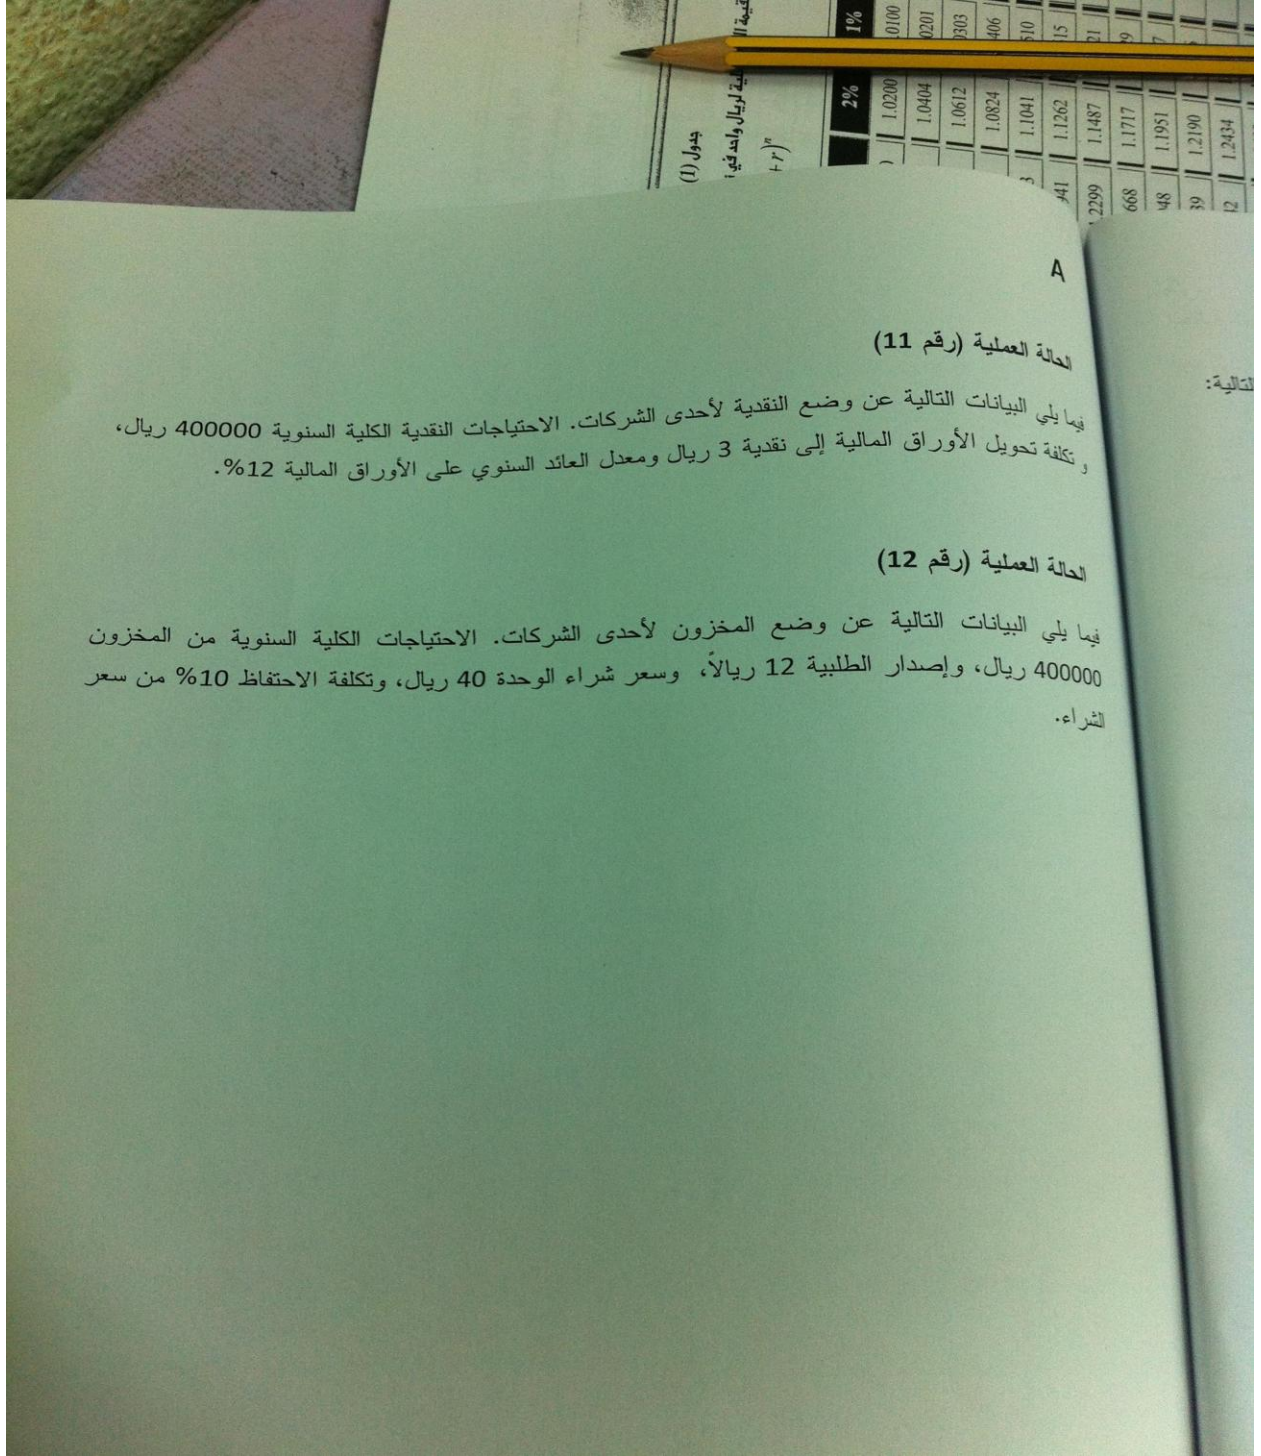 1%
.0100
0201
0303
406
510
15
21
2%
1.0200
1.0404
1.0612
1.0824
1.1041
1.1262
1.1487
1.1717
1.1951
1.2190
1.2434
941
.2299
668
948
39
جدول (1)
لريال واحد في
+ r)ⁿ
A
الحالة العملية (رقم 11)
فيما يلي البيانات التالية عن وضع النقدية لأحدى الشركات. الاحتياجات النقدية الكلية السنوية 400000 ريال،
و تكلفة تحويل الأوراق المالية إلى نقدية 3 ريال ومعدل العائد السنوي على الأوراق المالية 12%.
الحالة العملية (رقم 12)
فيما يلي البيانات التالية عن وضع المخزون لأحدى الشركات. الاحتياجات الكلية السنوية من المخزون
400000 ريال، وإصدار الطلبية 12 ريالاً، وسعر شراء الوحدة 40 ريال، وتكلفة الاحتفاظ 10% من سعر
الشراء.
لتالية: